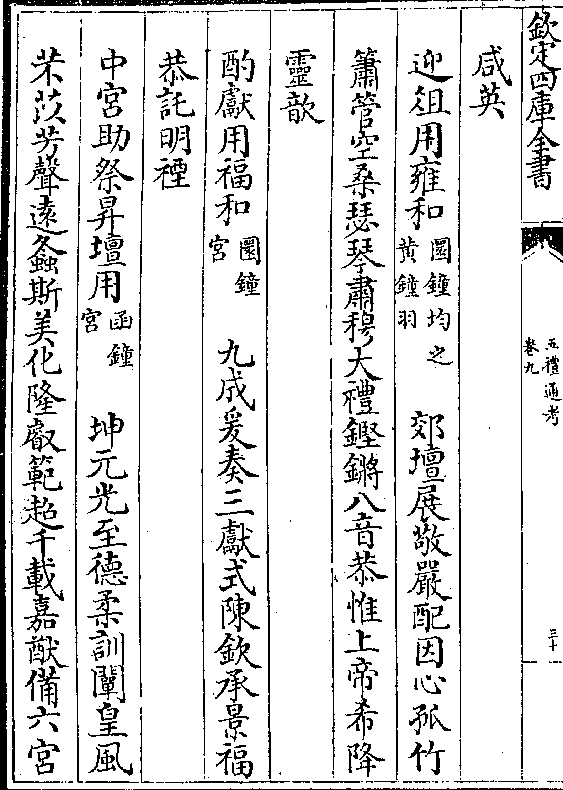 欽定四庫全書
五禮通考
卷九
三十
咸英
迎俎用雍和圜鐘均之黃鐘羽 郊壇展敬嚴配因心孤竹
簫管空桑瑟琴肅穆大禮鏗鏘八音恭惟上帝希降
靈歆
酌獻用福和圜鐘宮 九成爰奏三獻式陳欽承景福
恭託明禋
中宮助祭昇壇用函鐘宮 坤元光至德柔訓闡皇風
芣苡芳聲遠螽斯美化隆叡範超千載嘉猷備六宮